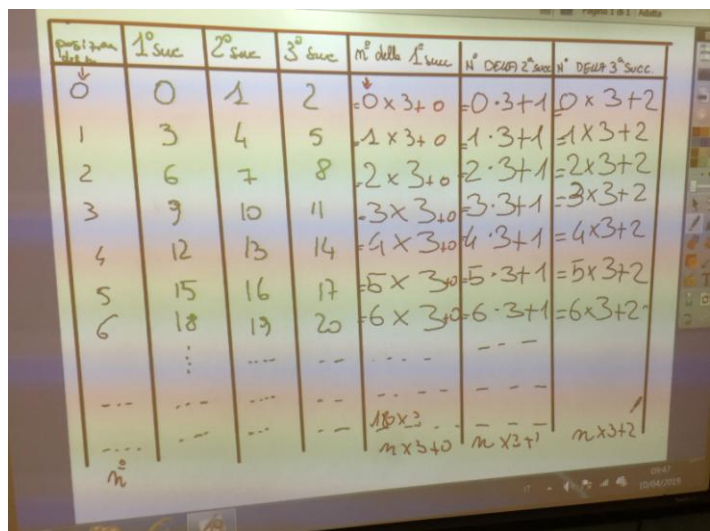 Pagina 1 di 1
posizione 1° suc 2° suc 3° suc n° della 1° succ N° DELLA 2° succ N° DELLA 3° succ.
0 0 1 2 =0 x 3+0 =0·3+1 =0 x 3+2
1 3 4 5 =1 x 3+0 =1·3+1 =1x3+2
2 6 7 8 =2 x 3+0 =2·3+1 =2x3+2
3 9 10 11 =3x 3+0 =3·3+1 =3x3+2
4 12 13 14 =4 x 3+0 =4·3+1 =4x3+2
5 15 16 17 =5 x 3+0 =5·3+1 =5x3+2
6 18 19 20 =6 x 3+0 =6·3+1 =6x3+2
n° n x3+0 n x3+1 n x3+2
IT 09:47
10/04/2018